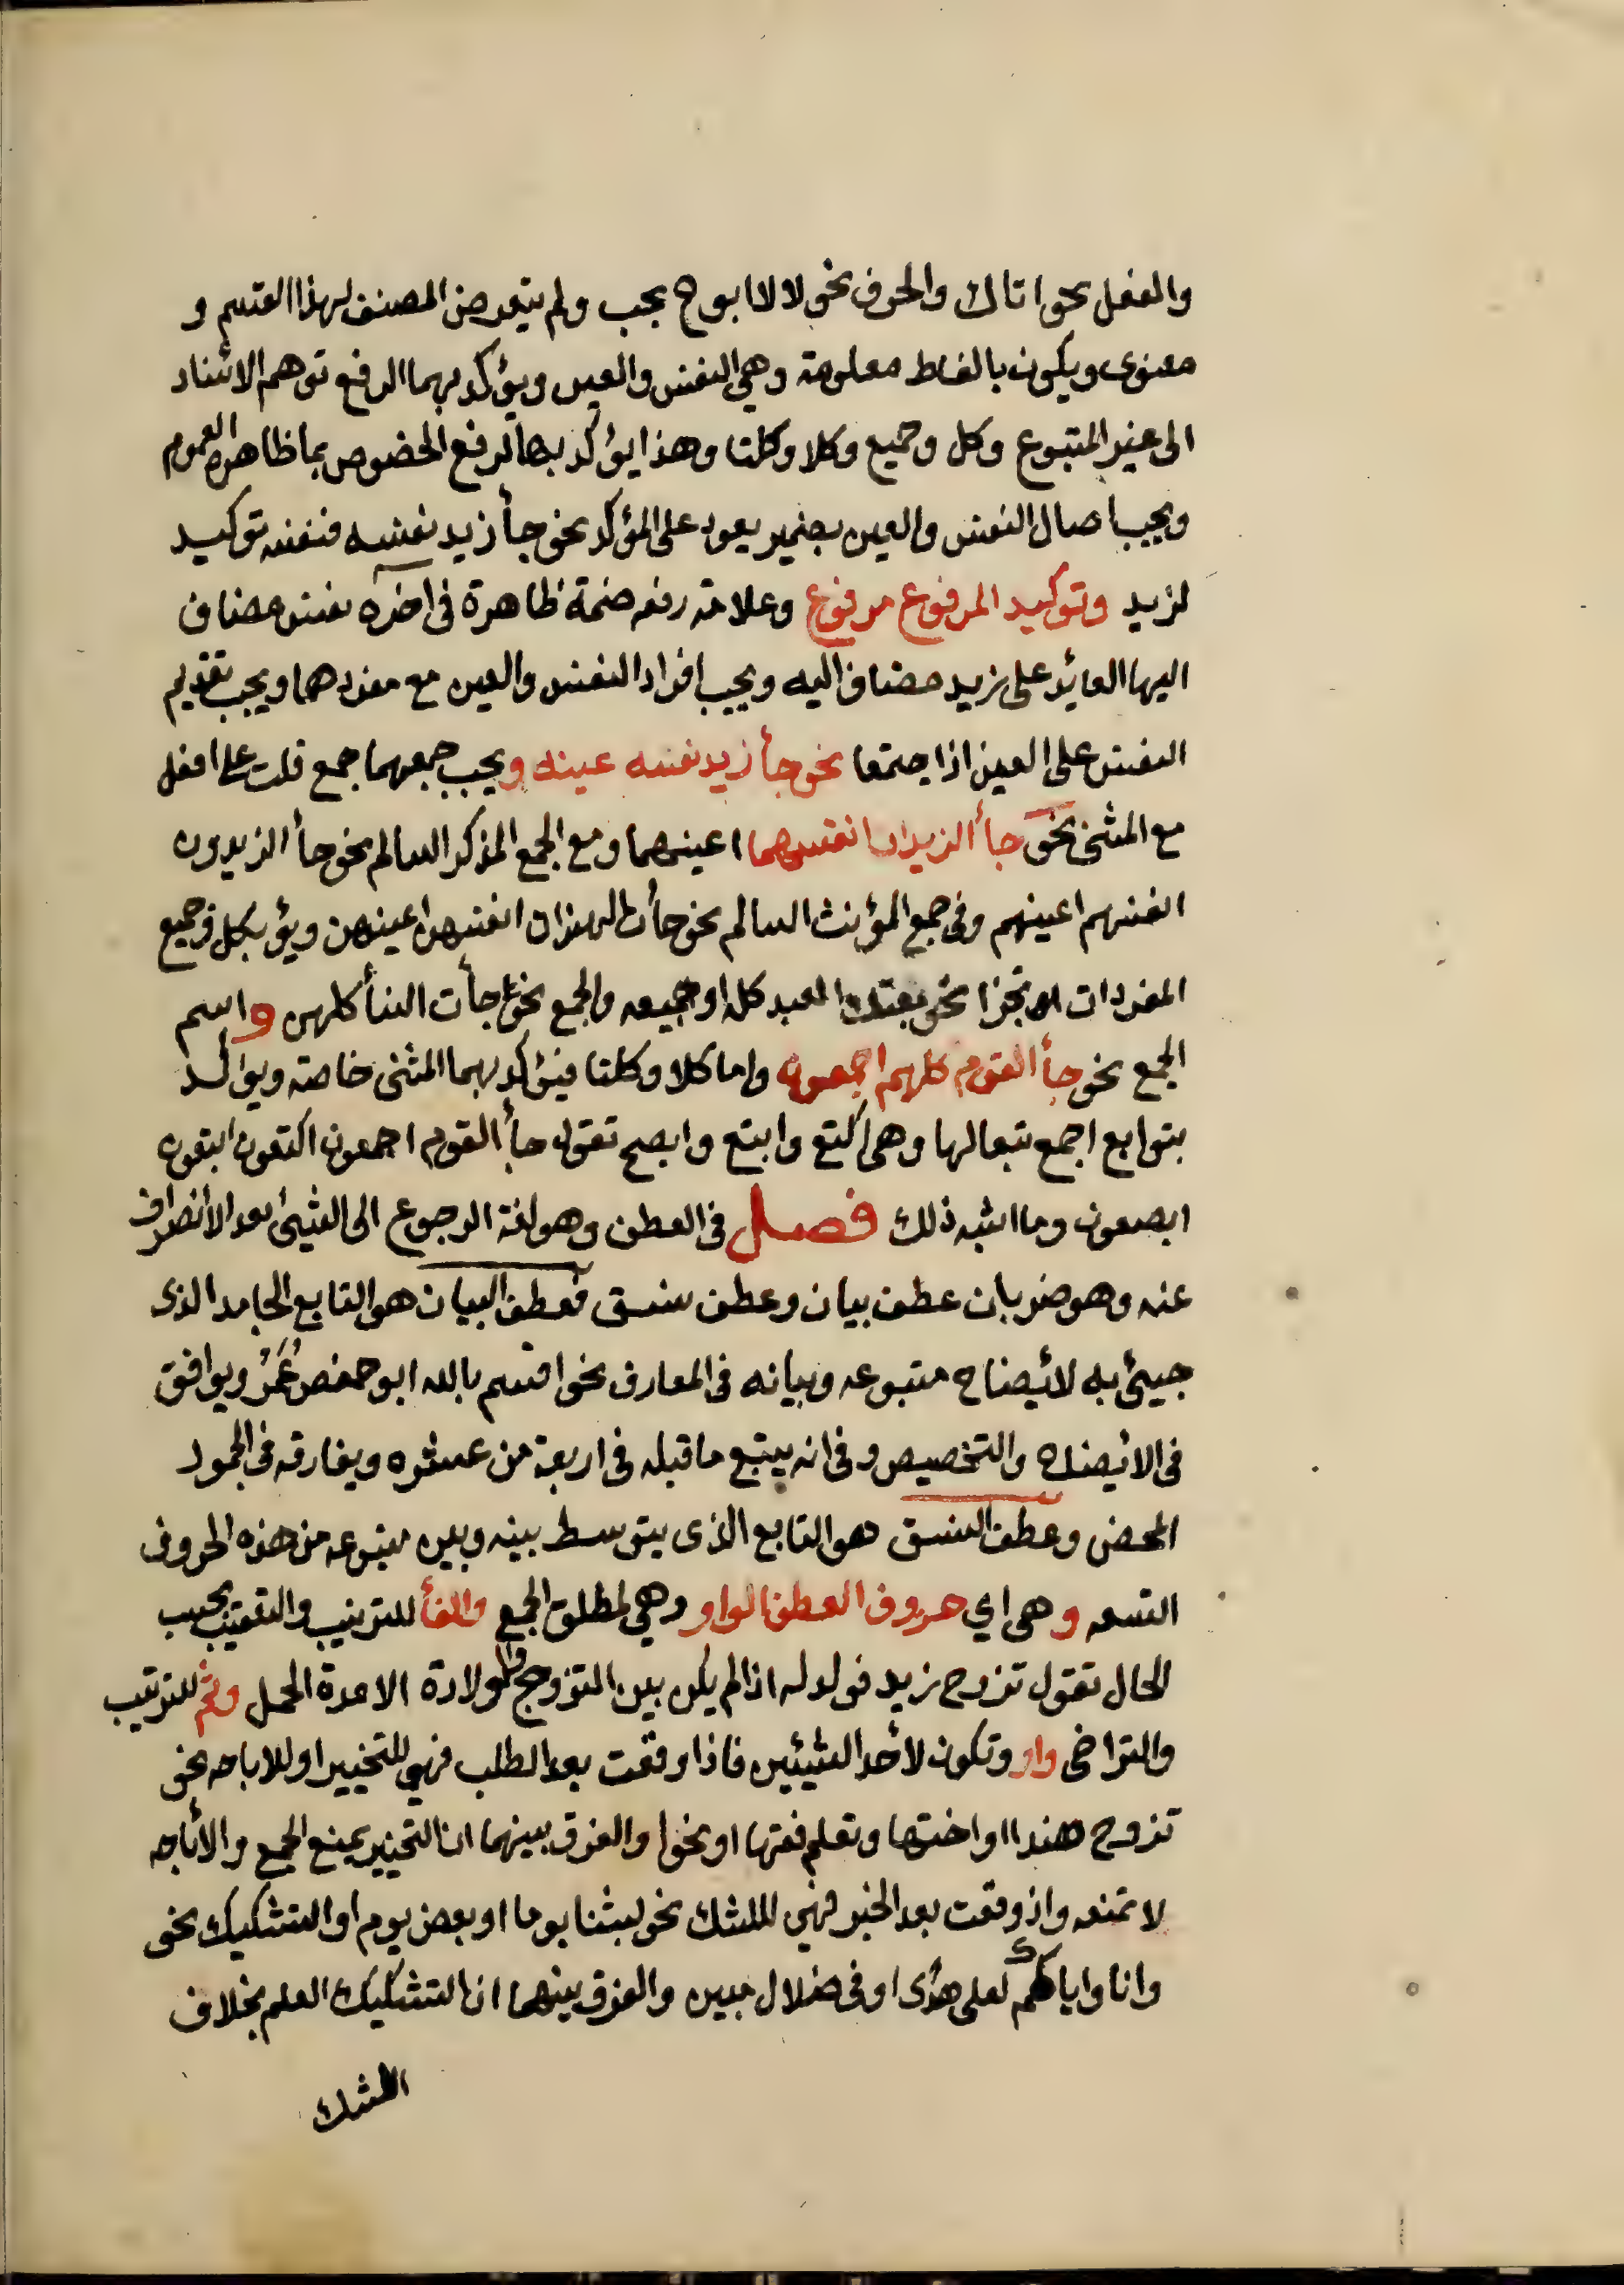 والفعل نحو اتاك والحرف نحو لا لا ابوح بحب ولم يتعرض المصنف لهذا القسم و
معنوى ويكون بالفاظ معلومة وهي النفس والعين ويؤكد بهما الرفع توهم الاسناد
الى غير المتبوع وكل وجميع وكلا وكلتا وهذا يؤكد بها لرفع الخصوص بما ظاهره العموم
ويجب اصال النفس والعين بضمير يعود على المؤكد نحو جأ زيد نفسه فنفسه توكيد
لزيد وتوكيد المرفوع مرفوع وعلامة رفعه ضمة ظاهرة في اخره نفس مضاف
اليها العائد على زيد مضاف اليه ويجب افراد النفس والعين مع مفردهما ويجب تقديم
النفس على العين اذا اجتمعا نحو جأ زيد نفسه عينه ويجب جمعهما جمع قلت على افعل
مع المثنى نحو جأ الزيدان انفسهما اعينهما ومع الجمع المذكر السالم نحو جأ الزيدون
انفسهم اعينهم وفي جمع المؤنث السالم نحو جأت الهندات انفسهن اعينهن ويؤ بكل وجميع
المفردات ان تجزا نحو بعتك العبد كله او جميعه والجمع نحو جأت النسأ كلهن واسم
الجمع نحو جأ القوم كلهم اجمعون واما كلا وكلتا فيؤكد بهما المثنى خاصة ويؤاكد
بتوابع اجمع تبعا لها وهي اكتع وابتع وابصع تقول جأ القوم اجمعون اكتعون ابتعون
ابصعون وما اشبه ذلك فصل في العطف وهو لغة الرجوع الى الشيئ بعد الأنصراف
عنه وهو ضربان عطف بيان وعطف نسق فعطف البيان هو التابع الجامد الذى
جيئ به لأيضاح متبوعه وبيانه في المعارف نحو اقسم بالله ابو حفص عُمَرُ ويوافق
في الأيضاح والتخصيص وفي انه يتبع ما قبله في اربعة من عشره ويفارقه في الجمود
المحض وعطف النسق هو التابع الذى يتوسط بينه وبين متبوعه من هذه الحروف
التسعه وهي اي حروف العطف الواو وهي لمطلق الجمع والفأ للترتيب والتعقيب بحسب
الحال تقول تزوج زيد فولد له اذا لم يكن بين التزوج والولادة الا مدة الحمل وثم للترتيب
والتراخى واو وتكون لأحد الشيئين فاذا وقعت بعد الطلب فهي للتخيير او للاباحه نحو
تزوج هندا او اختها وتعلم فقها او نحوا والفرق بينهما ان التخيير يمنع الجمع والأباحه
لا تمنعه واذ وقعت بعد الخبر فهي للشك نحو لبثنا يوما او بعض يوم او التشكيك نحو
وانا واياكم لعلى هدًى او في ضلال مبين والفرق بينهما ان التشكيك العلم بخلاف
الشك